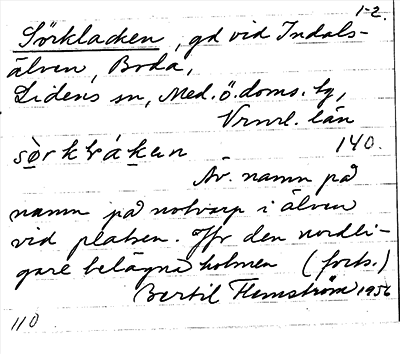 1-2.
Sörklacken, gd vid Indals-
älven, Boda,
Lidens sn, Med. ö. doms. tg,
Vrnrl. län
140.
Äv. namn på
namn på notvarp i älven
vid platsen. Jfr den nordli-
gare belägna holmen (forts.)
Bertil Flemström 1956
110